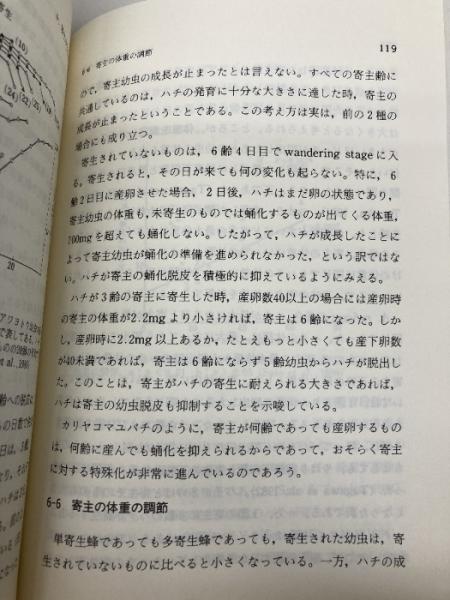 6-6 寄主の体重の調節
119
ので，寄主幼虫の成長が止まったとは言えない。すべての寄主齢に
共通しているのは，ハチの発育に十分な大きさに達した時，寄主の
成長が止まったということである。この考え方は実は，前の2種の
場合にも成り立つ。
寄生されていないものは，6齢4日目でwandering stageに入
る。寄生されると，その日が来ても何の変化も起らない。特に，6
齢2日目に産卵させた場合，2日後，ハチはまだ卵の状態であり，
寄主幼虫の体重も，未寄生のものでは蛹化するものが出てくる体重，
700mgを超えても蛹化しない。したがって，ハチが成長したことに
よって寄主幼虫が蛹化の準備を進められなかった，という訳ではな
い。ハチが寄主の蛹化脱皮を積極的に抑えているようにみえる。
ハチが3齢の寄主に寄生した時，産卵数40以上の場合には産卵時
の寄主の体重が2.2mgより小さければ，寄主は6齢になった。しか
し，産卵時に2.2mg以上あるか，たとえもっと小さくても産下卵数
が40未満であれば，寄主は6齢にならず5齢幼虫からハチが脱出し
た。このことは，寄主がハチの寄生に耐えられる大きさであれば，
ハチは寄主の幼虫脱皮も抑制することを示唆している。
カリヤコマユバチのように，寄主が何齢であっても産卵するもの
は，何齢に産んでも蛹化を抑えられるからであって，おそらく寄主
に対する特殊化が非常に進んでいるのであろう。
6-6 寄主の体重の調節
単寄生蜂であっても多寄生蜂であっても，寄生された幼虫は，寄
生されていないものに比べると小さくなっている。一方，ハチの成
(10)
(24)
(25)
20